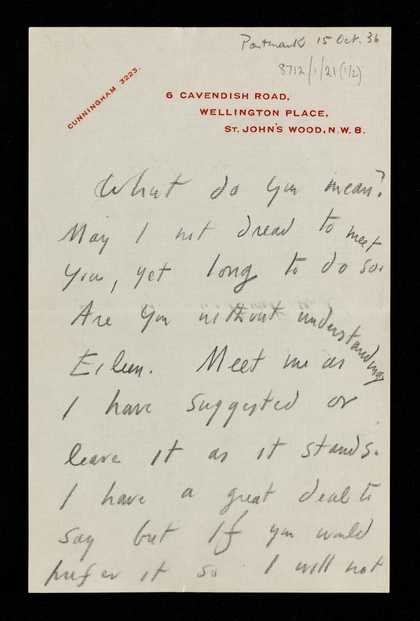 Postmark 15 Oct. 36
8712/1/21 (1/2)
CUNNINGHAM 3223.
6 CAVENDISH ROAD,
WELLINGTON PLACE,
ST. JOHN'S WOOD, N.W. 8.
What do you mean?
May I not dread to meet
you, yet long to do so.
Are you without understanding
Eileen. Meet me as
I have suggested or
leave it as it stands.
I have a great deal to
say but if you would
prefer it so I will not